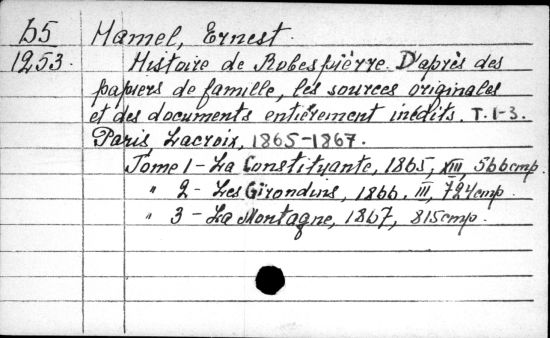 Б5 Hamel, Ernest.
1253. Histoire de Robespièrre. D'après des
papiers de famille, les sources originales
et des documents entièrement inédits. T. 1-3.
Paris, Lacroix, 1865-1867.
Tome 1 - La Constituante, 1865, XIII, 566 стр.
" 2 - Les Girondins, 1866. III, 724 стр.
" 3 - La Montagne, 1867, 815 стр.